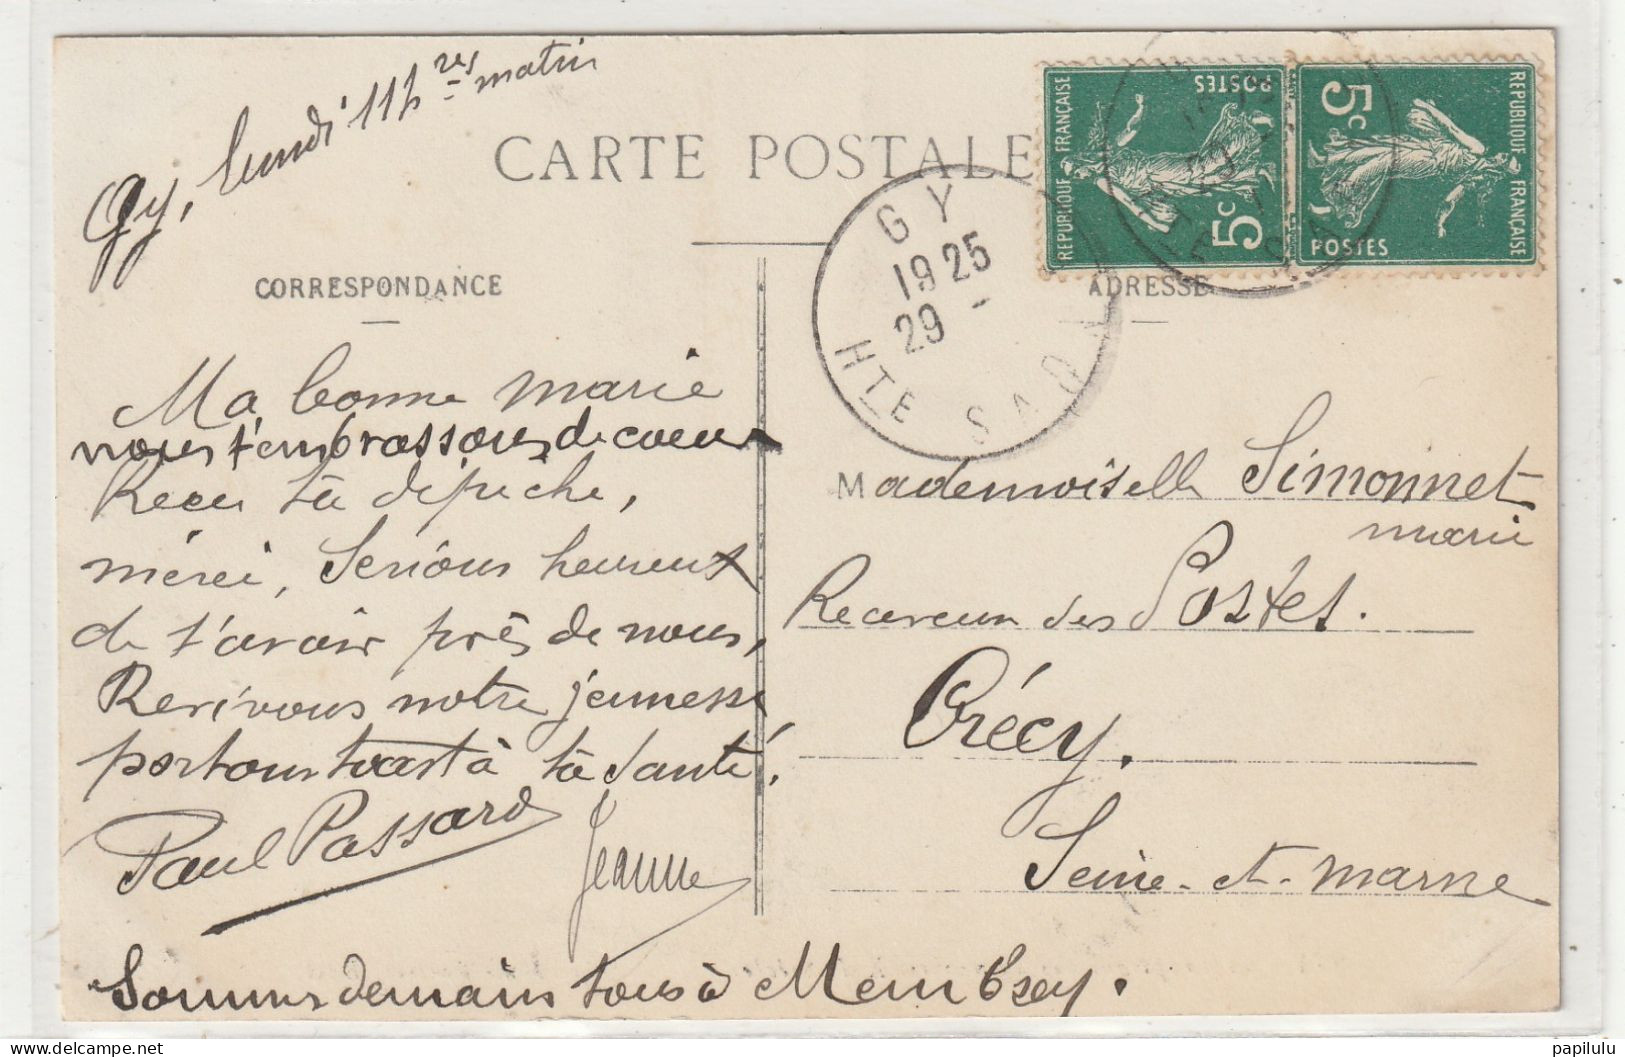 Gy, lundi 11h res matin
CARTE POSTALE
CORRESPONDANCE
ADRESSE
REPUBLIQUE FRANÇAISE
POSTES
5c
REPUBLIQUE FRANÇAISE
POSTES
5c
GY
19 25
29 -
HTE SAO
Ma bonne marie
nous t'embrassons de coeur
Recu ta dépêche,
mérci, Serions heureux
de t'avoir près de nous,
Revivons notre jeunesse
portons toast à ta santé!
Paul Passard
Jeanne
Sommes demain tous à Membrey.
Mademoiselle Simonnet
marie
Receveur des Postes.
Crécy.
Seine-et-Marne
papilulu